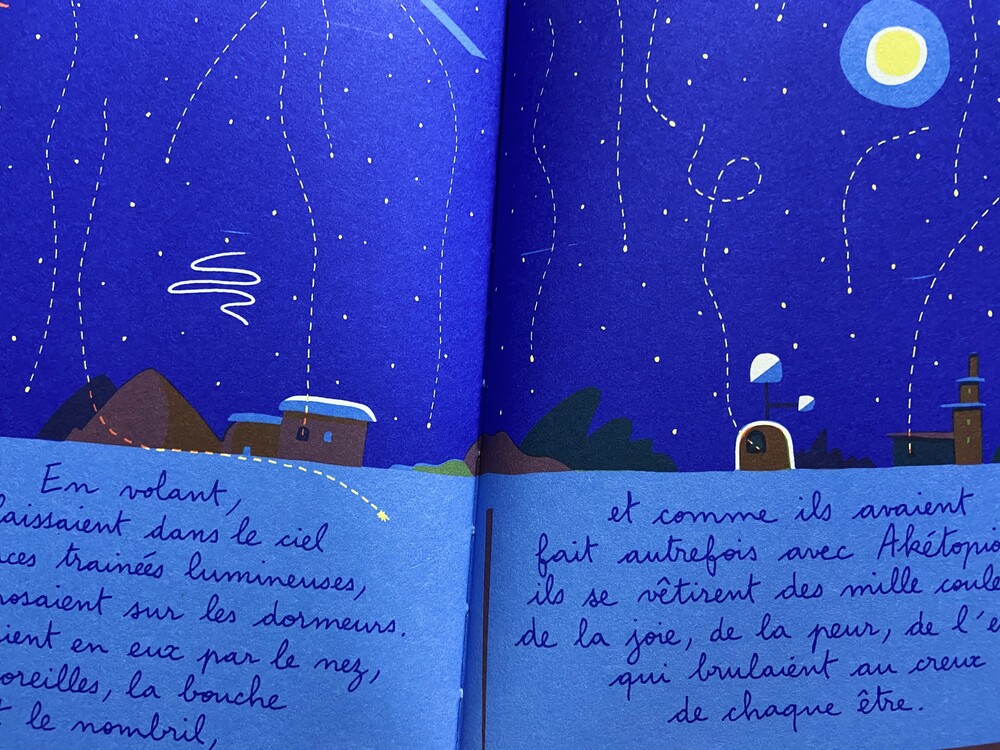 En volant,
laissaient dans le ciel
trainées lumineuses,
sur les dormeurs.
en eux par le nez,
oreilles, la bouche
le nombril,
et comme ils avaient
fait autrefois avec
ils se vêtirent des mille
de la joie, de la peur, de
qui brulaient au creux
de chaque être.